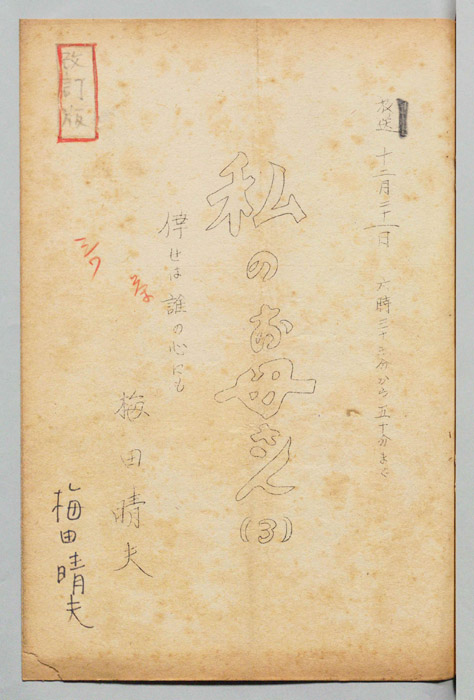 改訂版
放送 十二月二十一日 六時三十五分から五十分まで
私のお母さん(3)
倖せは誰の心にも
梅田晴夫
梅田晴夫